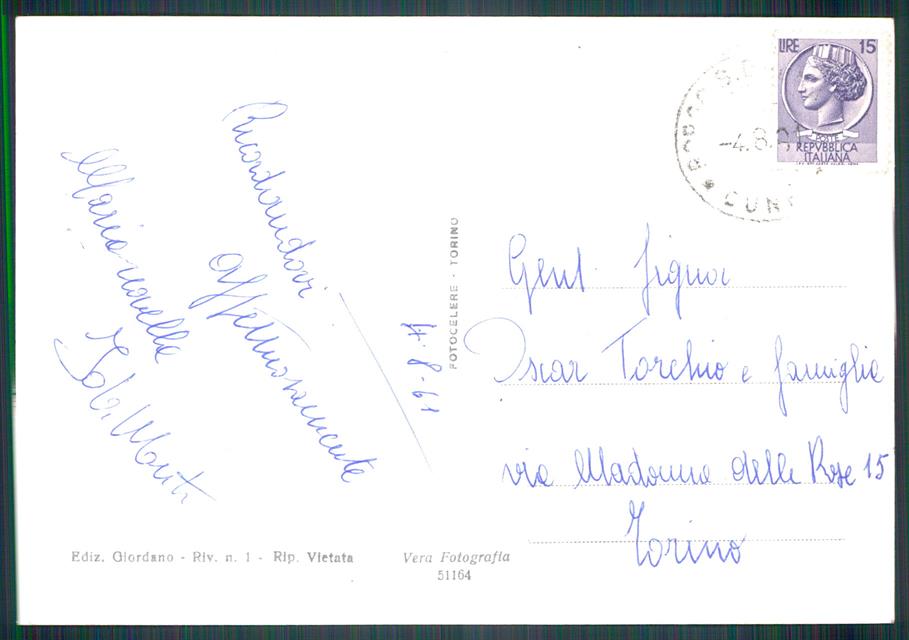 Ricordandovi
affettuosamente
4-8-61
Gent. Signor
Oscar Torchio e famiglia
via Madonna delle Rose 15
Torino
FOTOCELERE - TORINO
Ediz. Giordano - Riv. n. 1 - Rip. Vietata
Vera Fotografia
51164
LIRE 15
POSTE
REPVBBLICA
ITALIANA
-4.8.61